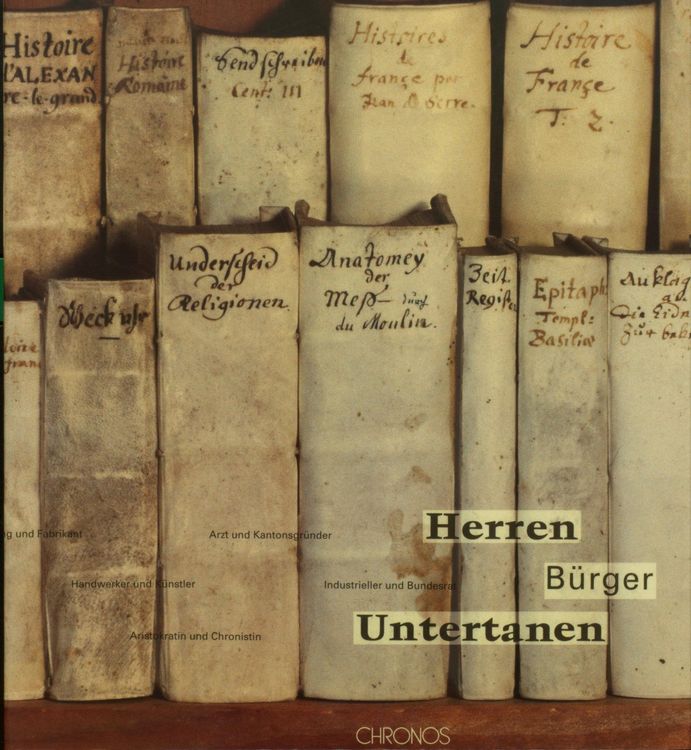 Histoire
d'ALEXAN
re-le-grand.
Histoire
Romaine
Sendschreiben
Cent: III
Histoires
de
françe par
Jean D Serre.
Histoire
de
Françe
T: 2.
Weck uhr
Underscheid
der
Religionen.
Anatomey
der
Meß- durch
du Moulin.
Zeit
Regist
Epitaph:
Templ:
Basiliæ
Auklag
an
Die Eidn
toire
franc
ng und Fabrikant
Arzt und Kantonsgründer
Herren
Handwerker und Künstler
Industrieller und Bundesrat
Bürger
Aristokratin und Chronistin
Untertanen
CHRONOS